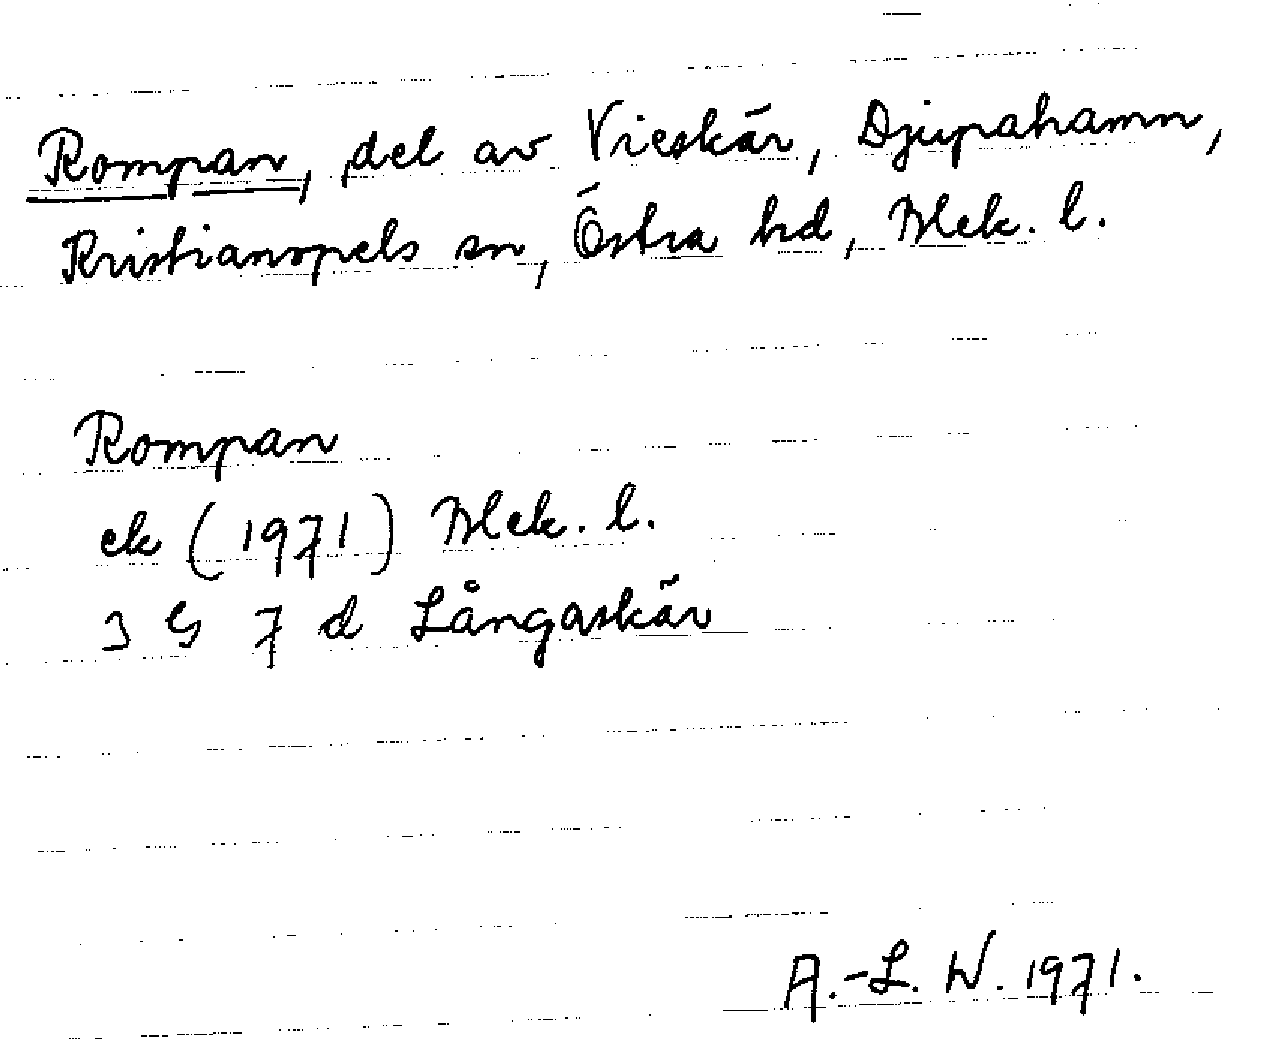 Rompan, del av Vieskär, Djupahamn,
Kristianopels sn, Östra hd, Blek. l.
Rompan
ek (1971) Blek. l.
3 G 7 d Långaskär
A.-L. W. 1971.